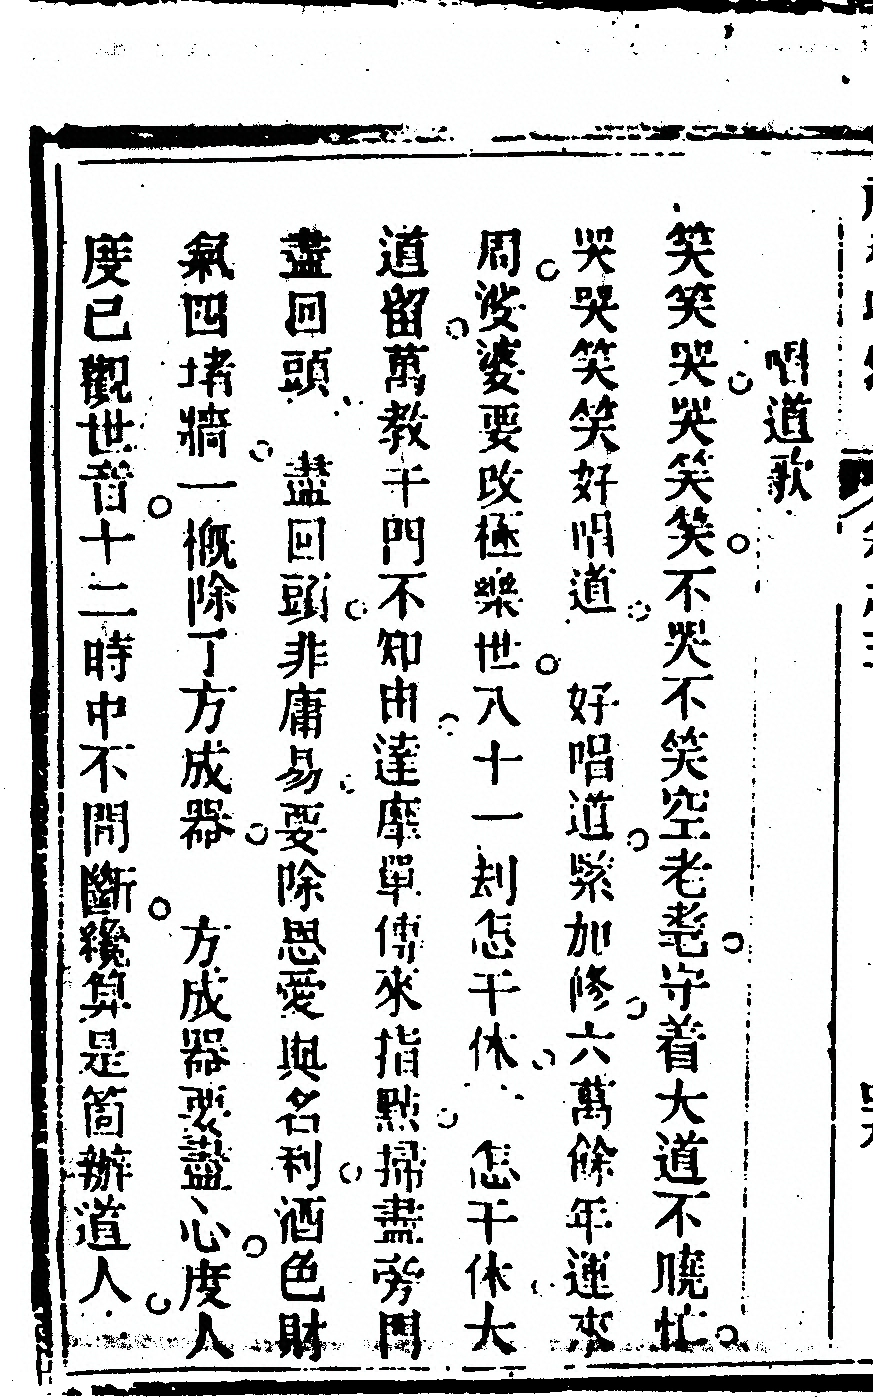 唱道歌
笑笑哭哭笑笑不哭不笑空老耄守着大道不曉忙
哭哭笑笑好唱道　好唱道緊加修六萬餘年運來
周娑婆要改極樂世八十一刦怎干休　怎干休大
道留萬教千門不知由達摩單傳來指點掃盡旁門
盡回頭　盡回頭非庸易要除恩愛與名利酒色財
氣四堵牆一概除了方成器　方成器要盡心度人
度已觀世音十二時中不間斷纔算是箇辦道人